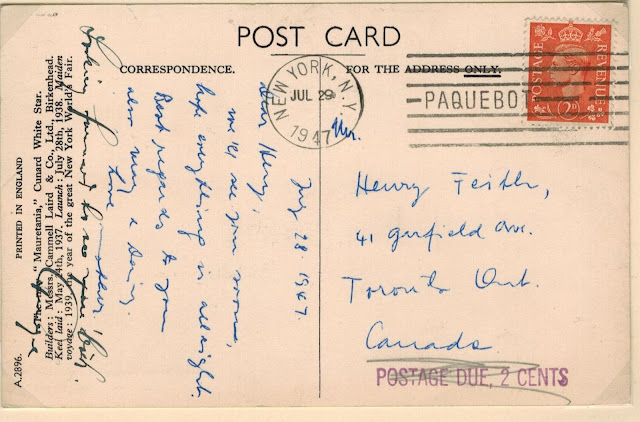 POST CARD
CORRESPONDENCE.
FOR THE ADDRESS ONLY.
NEW YORK, N.Y.
JUL 29
1947
PAQUEBOT
POSTAGE REVENUE
2D
July 28. 1947.
Dear Henry:
we'll see you soon,
hope everything is allright.
Best regards to you
also
Love
Looking forward to see you
Mr.
Henry Feith,
41 Garfield Ave.
Toronto Ont.
Canada
POSTAGE DUE, 2 CENTS
PRINTED IN ENGLAND
The new "Mauretania," Cunard White Star.
Builders: Messrs. Cammell Laird & Co., Ltd., Birkenhead.
Keel laid: May 24th, 1937. Launch: July 28th, 1938. Maiden
voyage: 1939, the year of the great New York World's Fair.
A.2896.